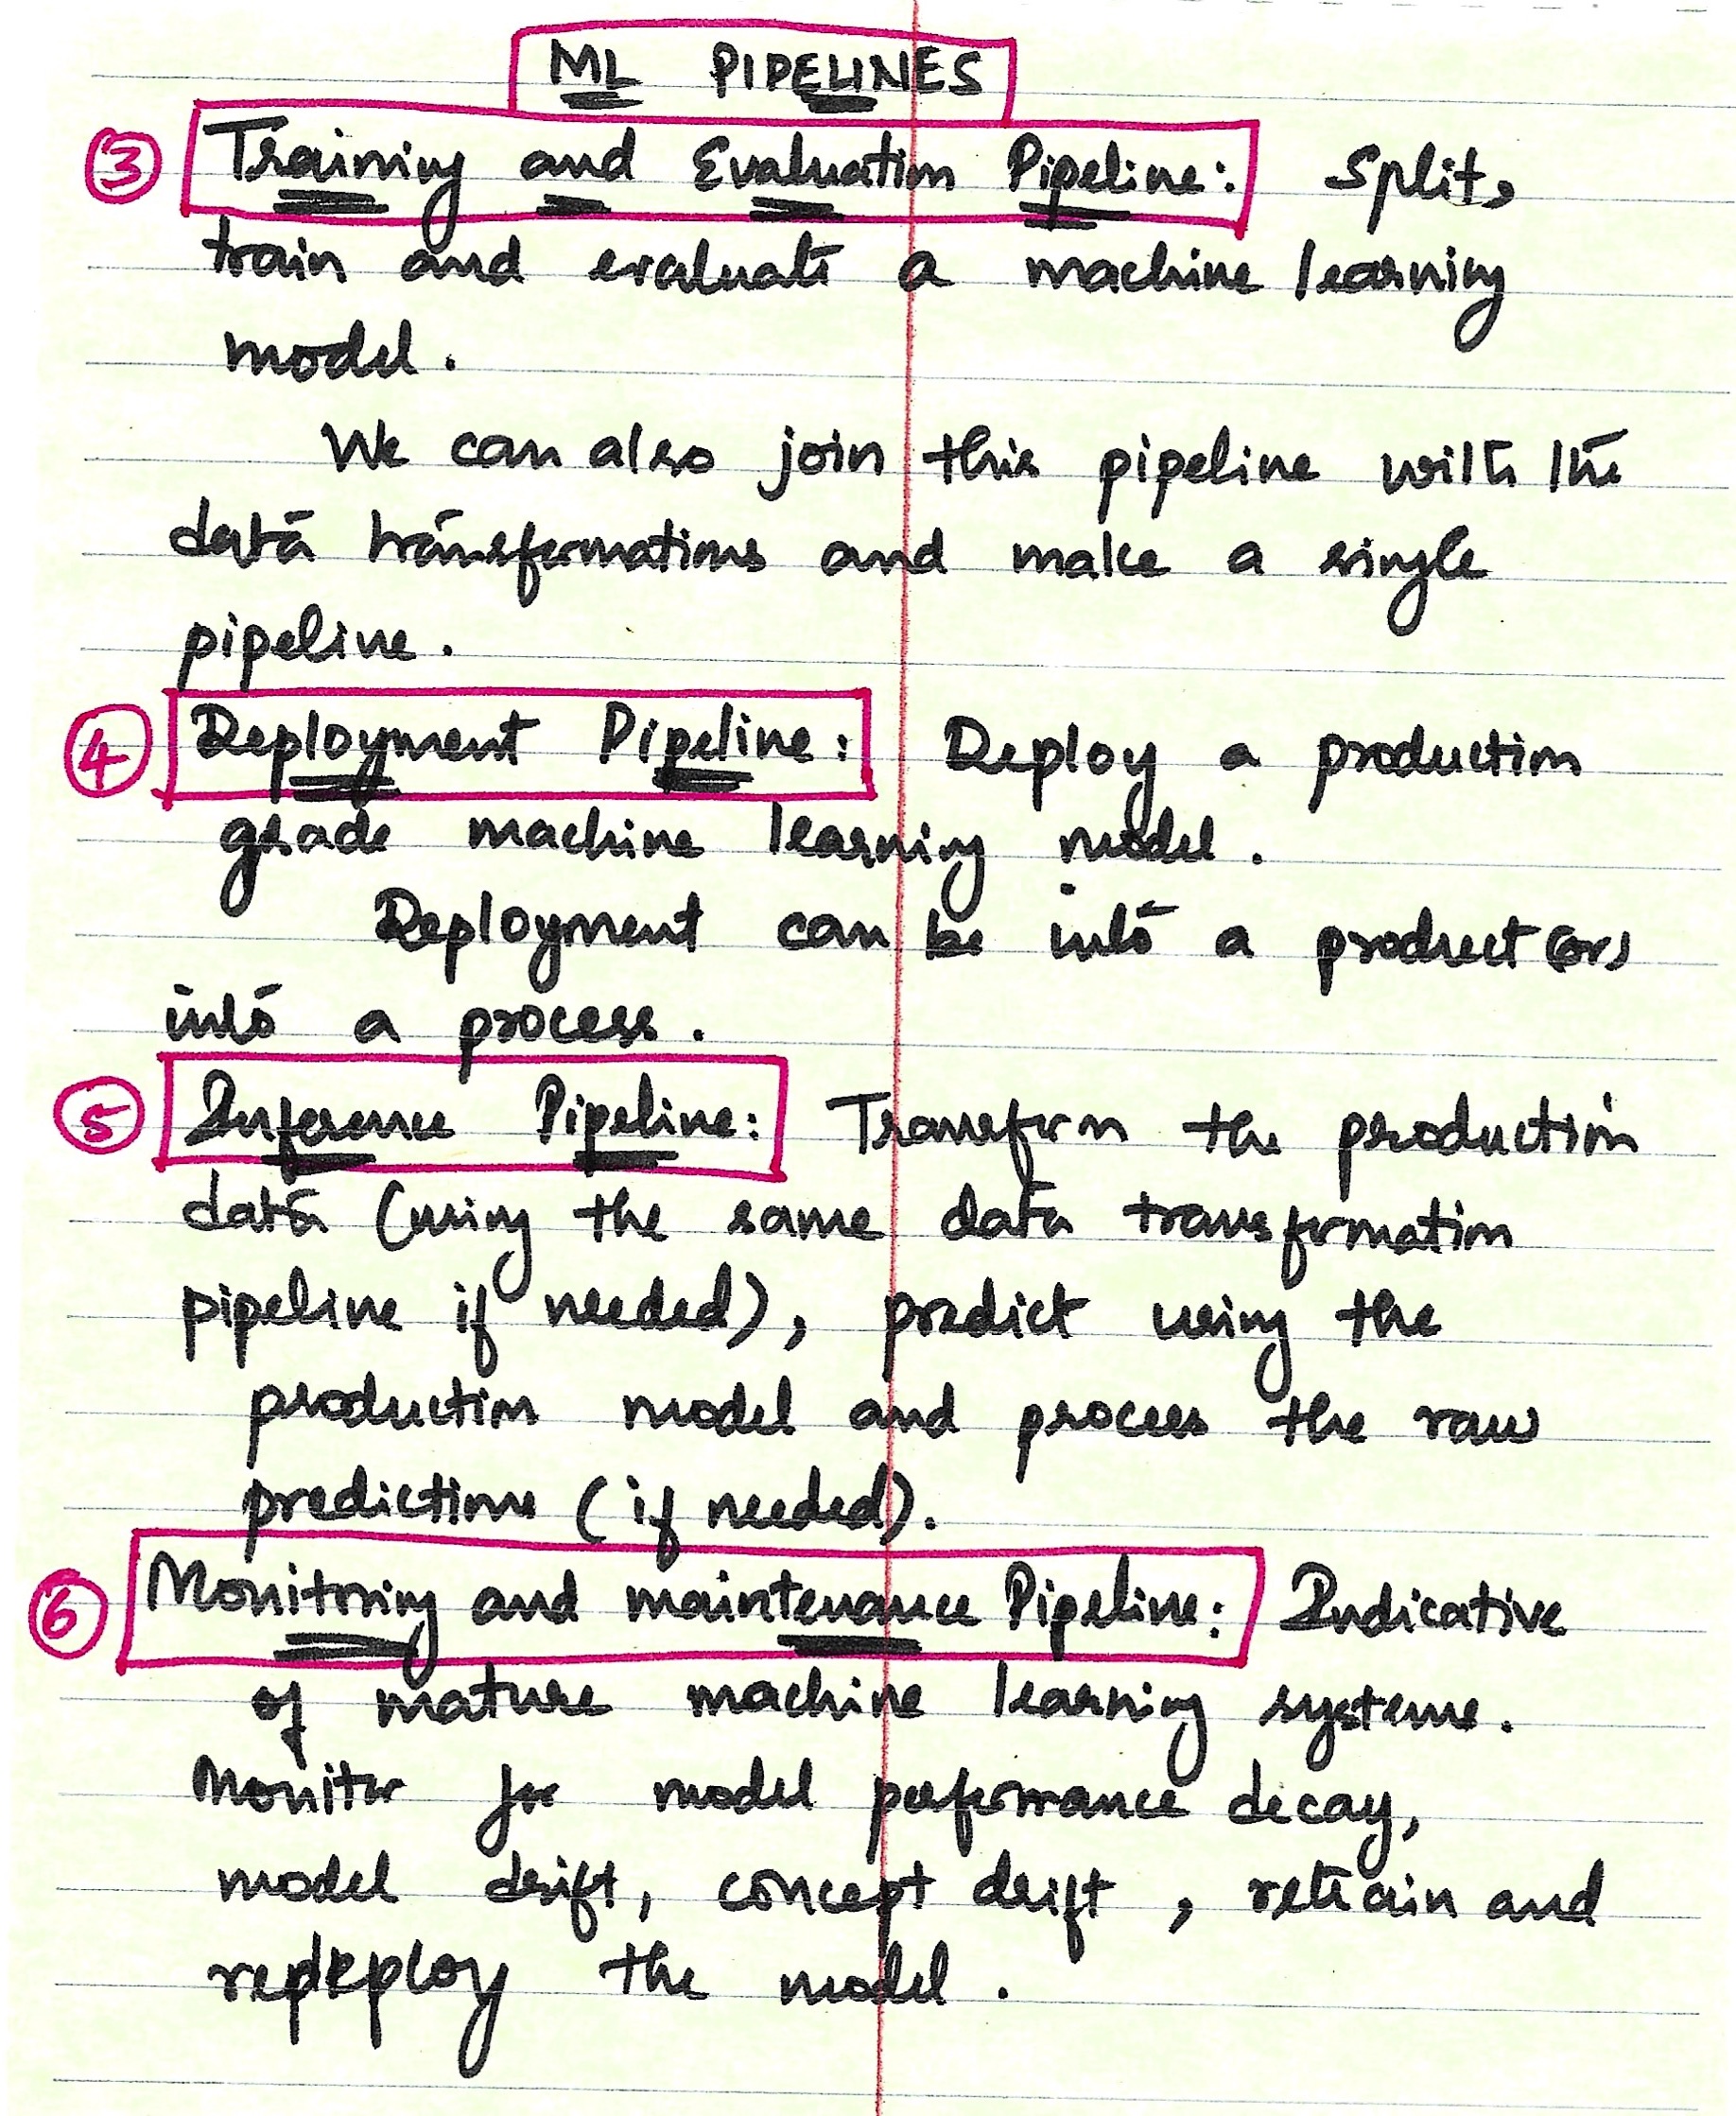 ML PIPELINES
3 Training and Evaluation Pipeline: Split,
train and evaluate a machine learning
model.
We can also join this pipeline with the
data transformations and make a single
pipeline.
4 Deployment Pipeline: Deploy a production
grade machine learning model.
Deployment can be into a product (or)
into a process.
5 Inference Pipeline: Transform the production
data (using the same data transformation
pipeline if needed), predict using the
production model and process the raw
predictions (if needed).
6 Monitoring and maintenance Pipeline: Indicative
of mature machine learning systems.
Monitor for model performance decay,
model drift, concept drift, retrain and
redeploy the model.